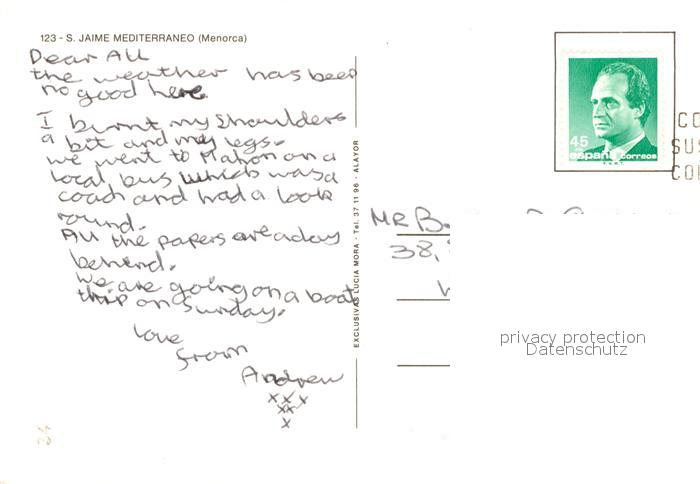 123 - S. JAIME MEDITERRANEO (Menorca)
Dear All
the weather has been
no good here.
I burnt my shoulders
a bit and my legs.
we went to Mahon on a
local bus which was a
coach and had a look
round.
All the papers are a day
behind.
We are going on a boat
trip on Sunday.
love
from
Andrew
x x x
x x
x
EXCLUSIVAS LUCIA MORA - Tel. 37 11 96 - ALAYOR
45
españa correos
CO
SUS
CO
MR B
38,
privacy protection
Datenschutz